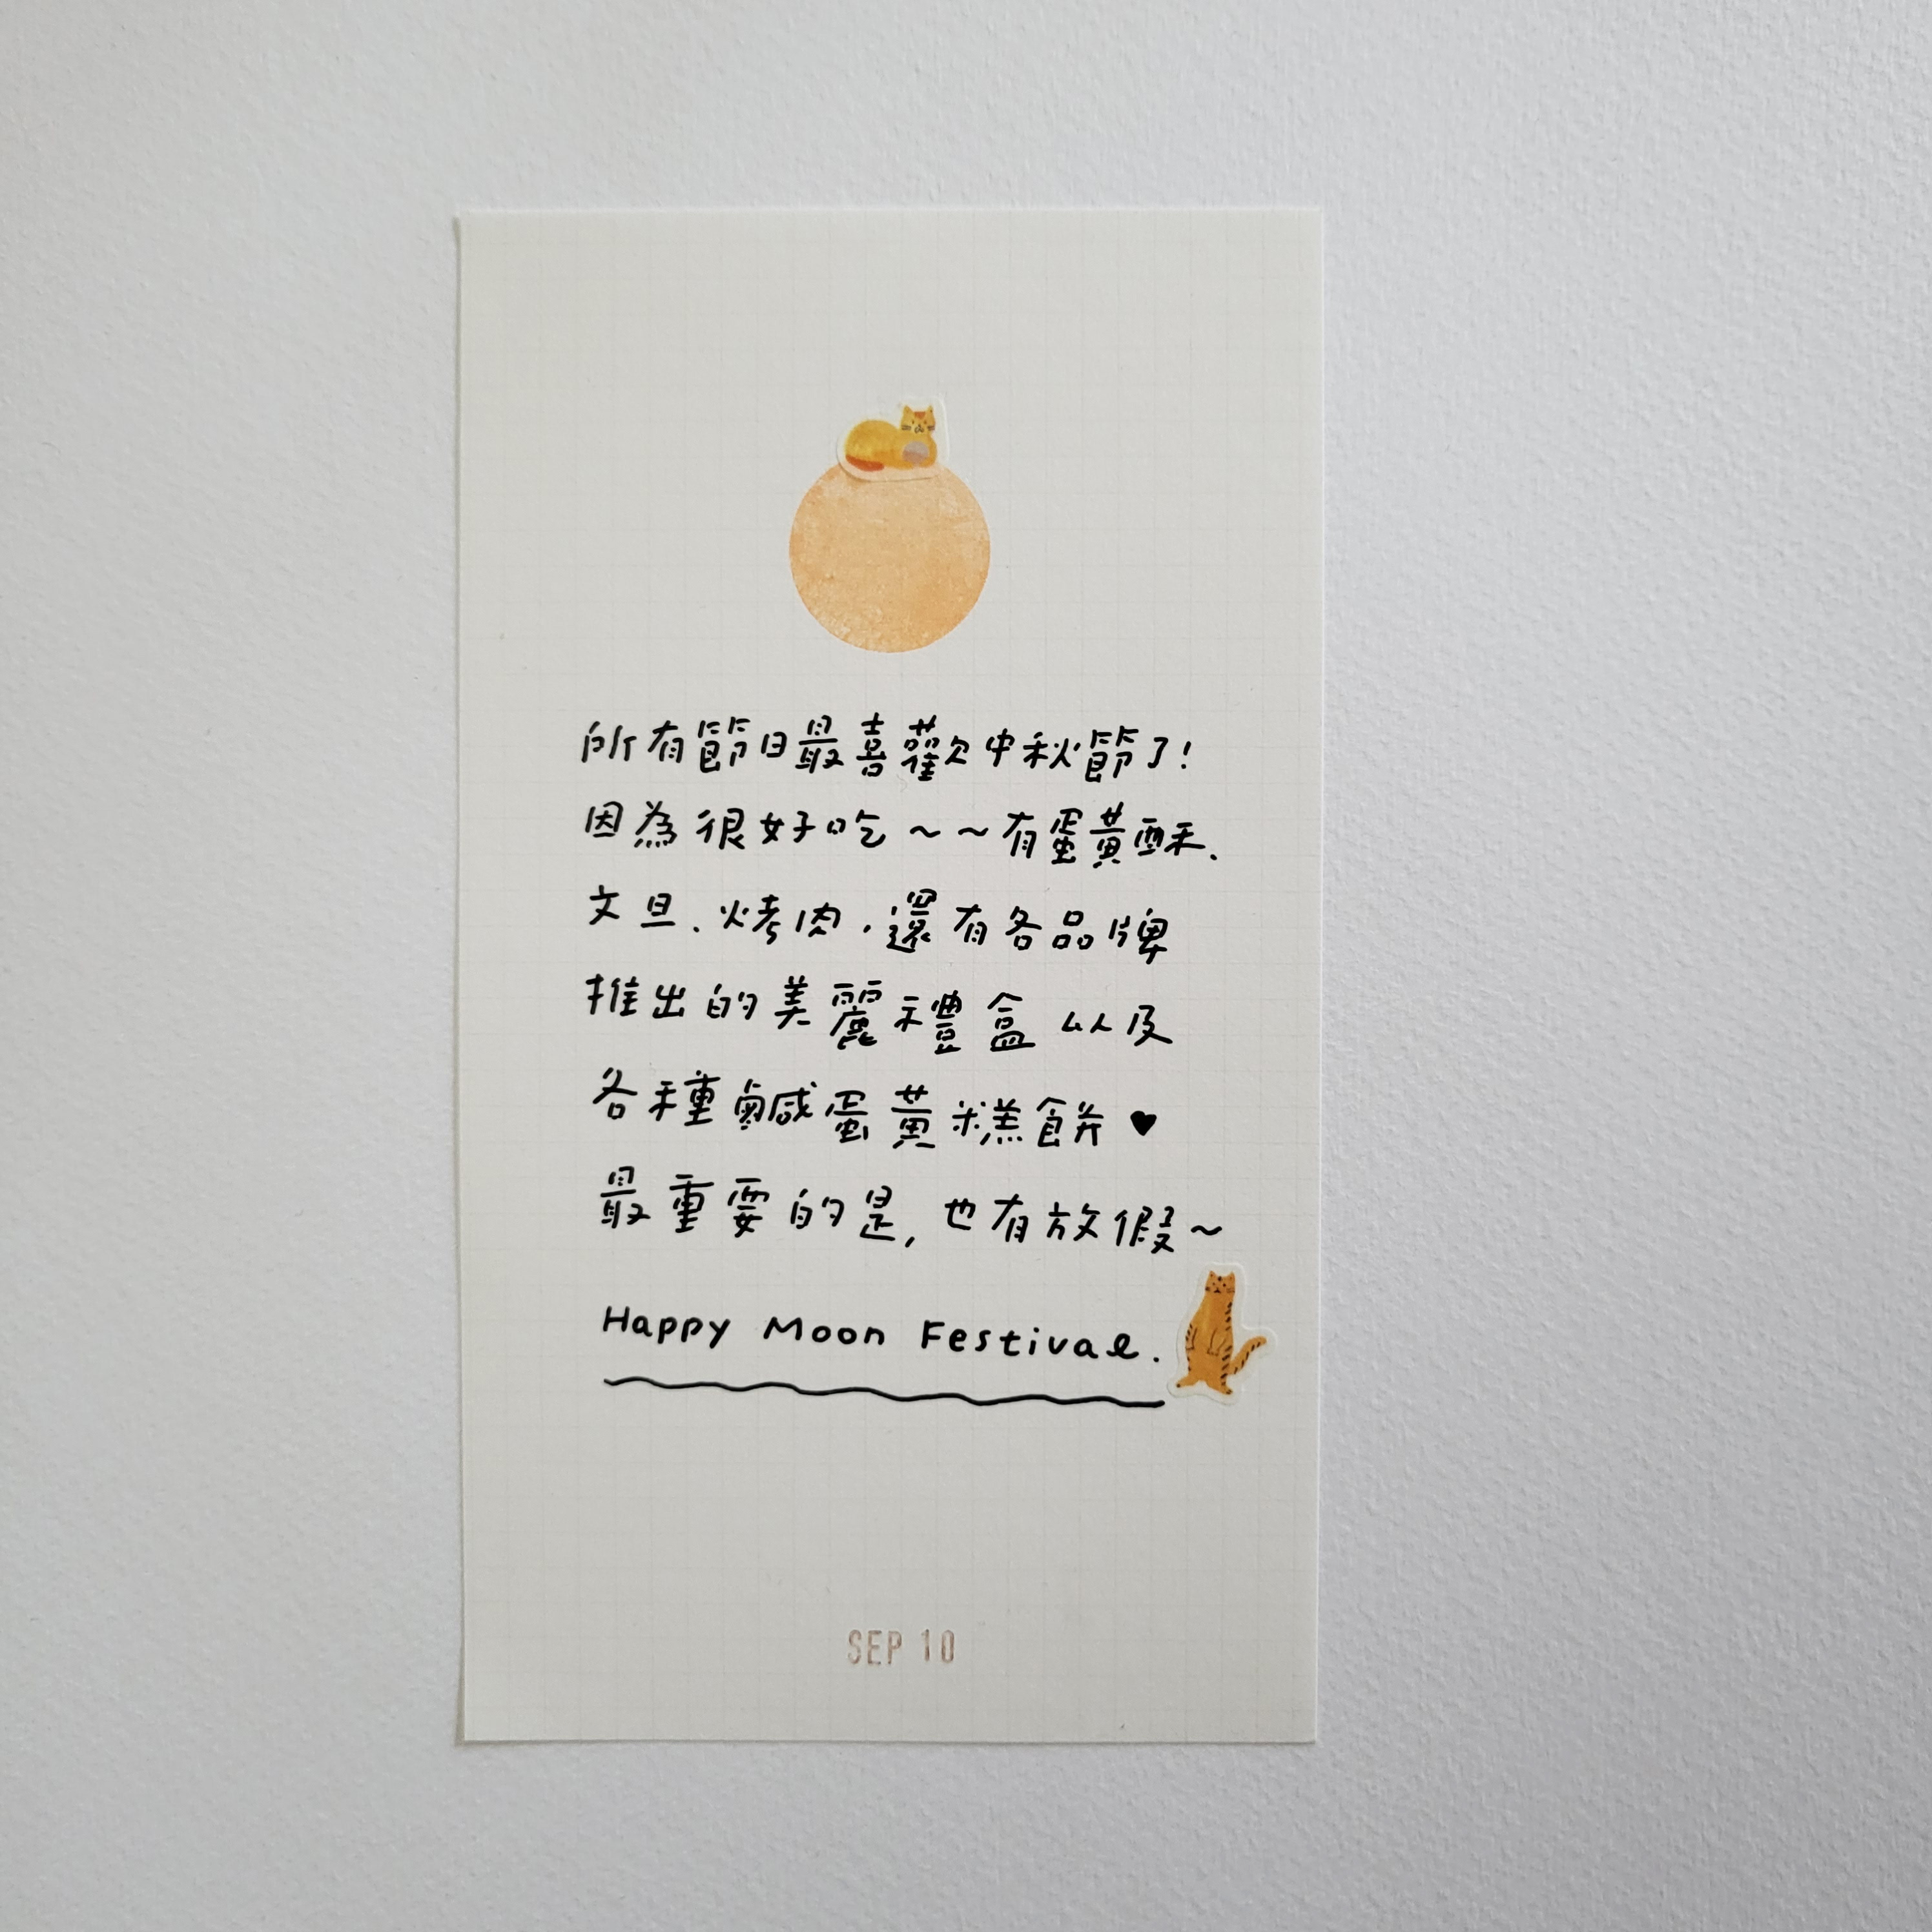 所有節日最喜歡中秋節了!
因為很好吃~~有蛋黃酥、
文旦、烤肉,還有各品牌
推出的美麗禮盒以及
各種鹹蛋黃糕餅♥
最重要的是,也有放假~
Happy Moon Festival.
SEP 10